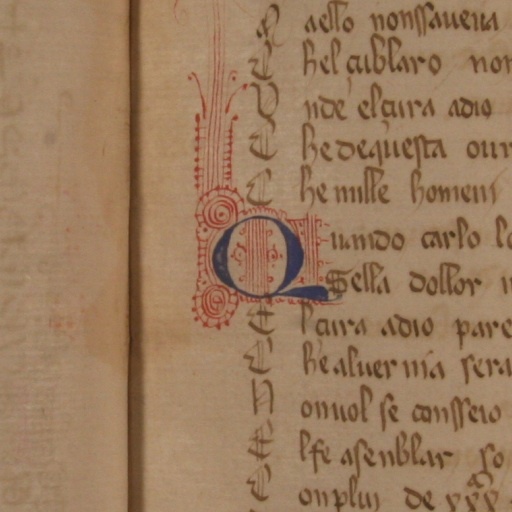 N aello nonssaveva
C hel cublaro non
V nde el çura adio
C he de questa our
C he mille homeni
Quando carlo lo
Sella dollor
E l çura adio pare
C he alver nia sera
N onvol se consseio
E lfe asenblar so
C onplui de xxx